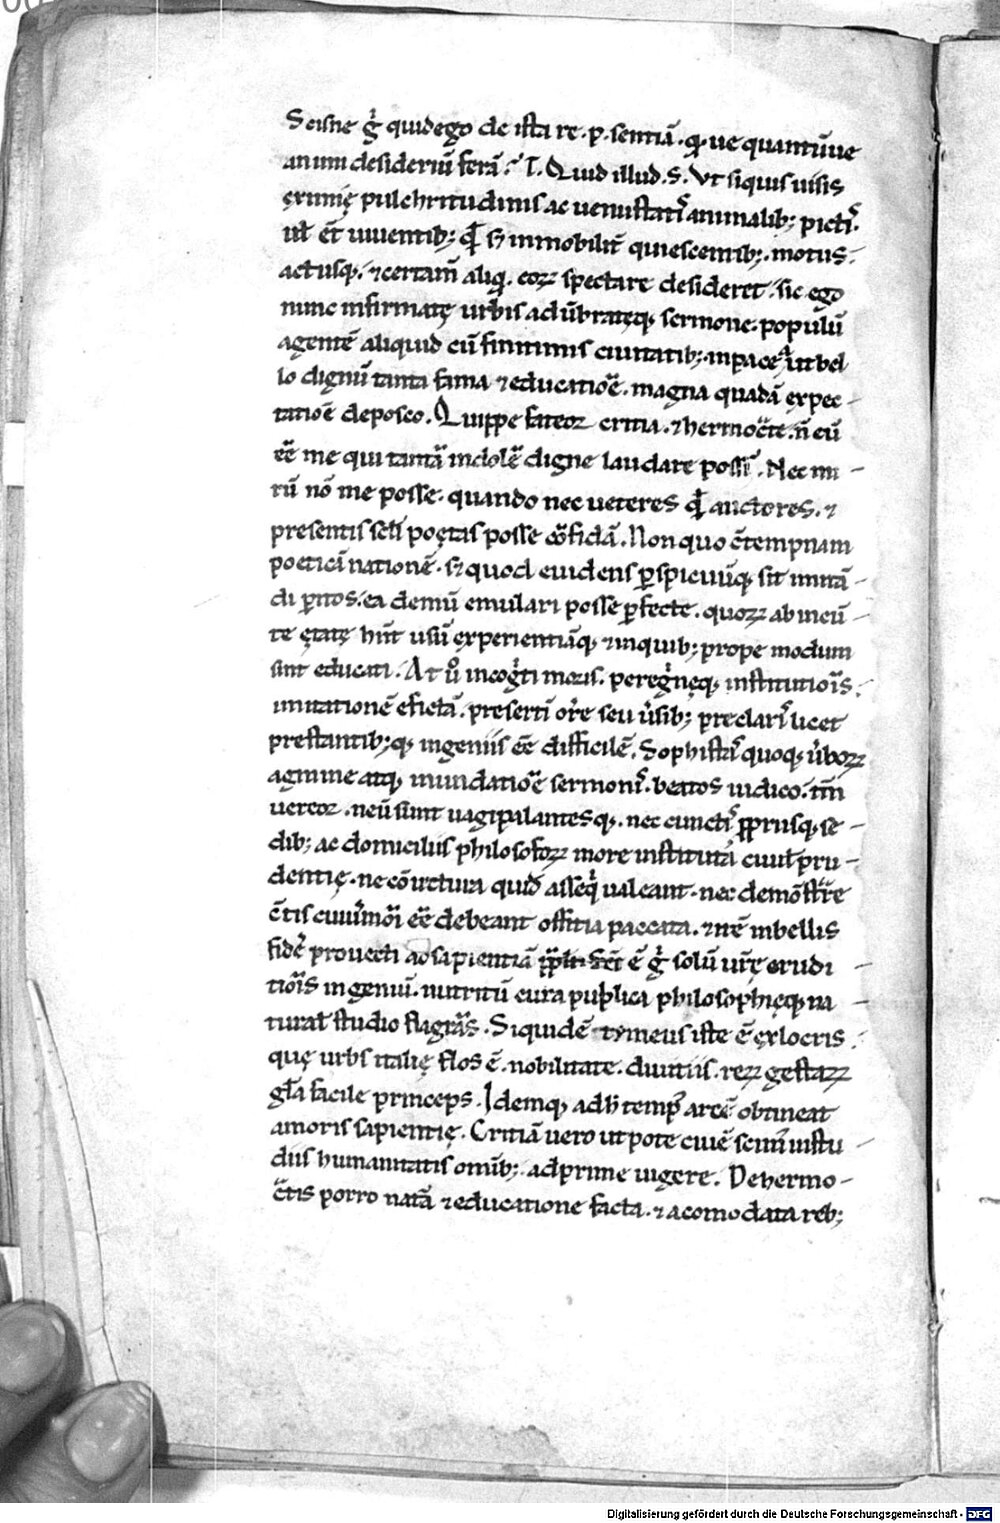 Scisne g̊ quid ego de ista re · p · sentiā · q̨ ue quantūve
animi desideriū ferā? T. Quid illud. S. Vt siquis uisis
eximię pulchritudinis ac uenustatis̄ animalib; picti᷒
ut ēt uiuentib; q̄ s; inmobilit̄ quiescentib; · motus
actusq; · ⁊ certam̄ aliq̨ · eoꝝ spectare desideret · sic ego
nunc infirmatę urbis adūbratęq; sermone · populū
agentē aliquid cū finitimis ciuitatib; in pace ut bel
lo dignū tanta fama ⁊ educatiōe · magna quadā expec-
tatiōe deposco. Quippe fateor critia · ⁊ hermoc̄te · ñ eū
ēē me qui tantā indolē digne laudare possī. Nec mi-
rū nō me posse · quando nec ueteres q̄ auctores · ⁊
presentis sct̄i poetas posse cōfidā. Non quo c̄tempnam
poeticā nationē · s; quod euidens ꝑspicuūq; sit imitā-
di ꝑitos · ea demū emulari posse ꝑfecte · quoꝝ ab ineū-
te ętate hnt̄ usū experientiāq; ⁊ inquib; prope modum
sint educati. At u̅o̅ incog̊ti moris · pereg̊nęq; institutiōis
imitationē efictā · presertī or̄e seu ūsib; preclaris̄ licet
prestantib;q; ingeniis ēē difficilē. Sophistas̄ quoq; ūboꝝ
agmine atq; inundatiōe sermonis̄ · beatos iudico · tm̄
uereor · neū sunt uagi palantesq; · nec cunctis̄ ꝓpriisq; se-
dib; ac domiciliis philosofoꝝ more instituta ciuil̄ pru-
dentię · ne cōiectura quid asseq̄ ualeant · nec demōstrar̄e
c̄tis cuiūmōi ēē debeant offitia paccata · ⁊ nē inbellis
fide᷒ prouecti ad sapientiā ꝓpl̄i. ē g̊ solū ur̄ę erudi-
tiōis ingeniū · nutritū cura puplica philosophięq; na-
tural̄ studio flagrās. Siquidē tymeus iste ē ex locris
quę urbs italię flos ē · nobilitate · diuitiis · reꝝ gestaꝝ
gl̄a facile princeps. Idemq; adh̄ temp᷒ arcē obtineat
amoris sapientię. Critiā uero ut pote ciuē scim᷒ in stu-
diis humanitatis omīb; · adprime uigere. De hermo-
c̄tis porro natā ⁊ educatione facta · ⁊ acomodata reb;
Digitalisierung gefördert durch die Deutsche Forschungsgemeinschaft - DFG